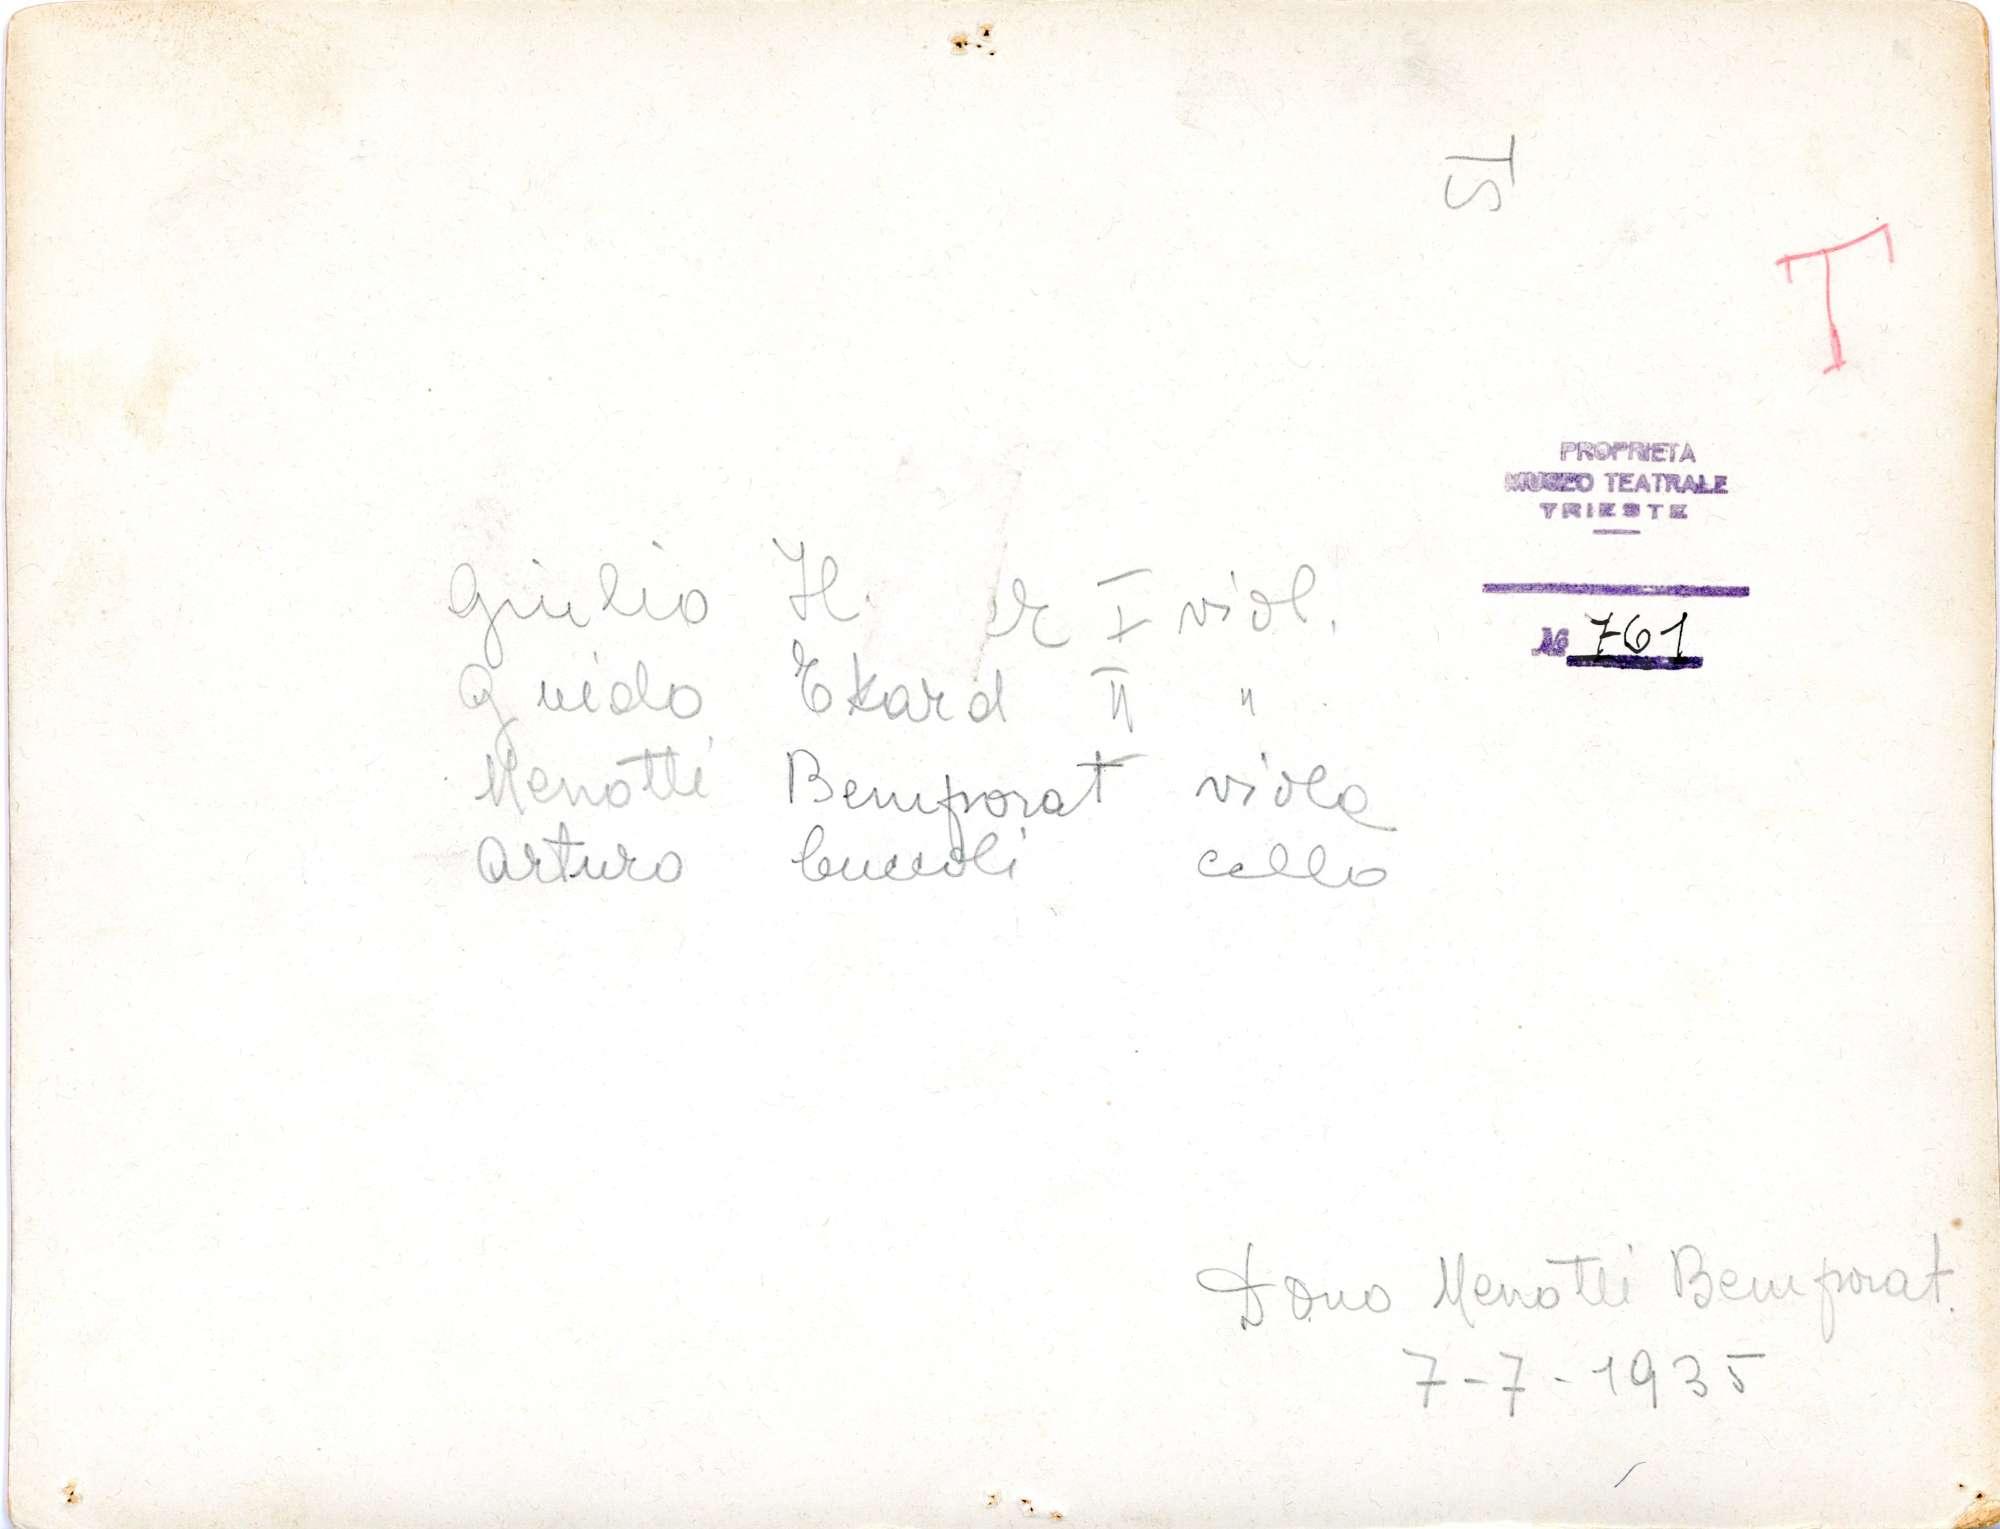 ST
T
PROPRIETA
MUSEO TEATRALE
TRIESTE
№ 761
Giulio H. er I viol.
Guido Ekard II "
Menotti Bemporat viola
Arturo Cuccoli cello
Dono Menotti Bemporat.
7-7-1935